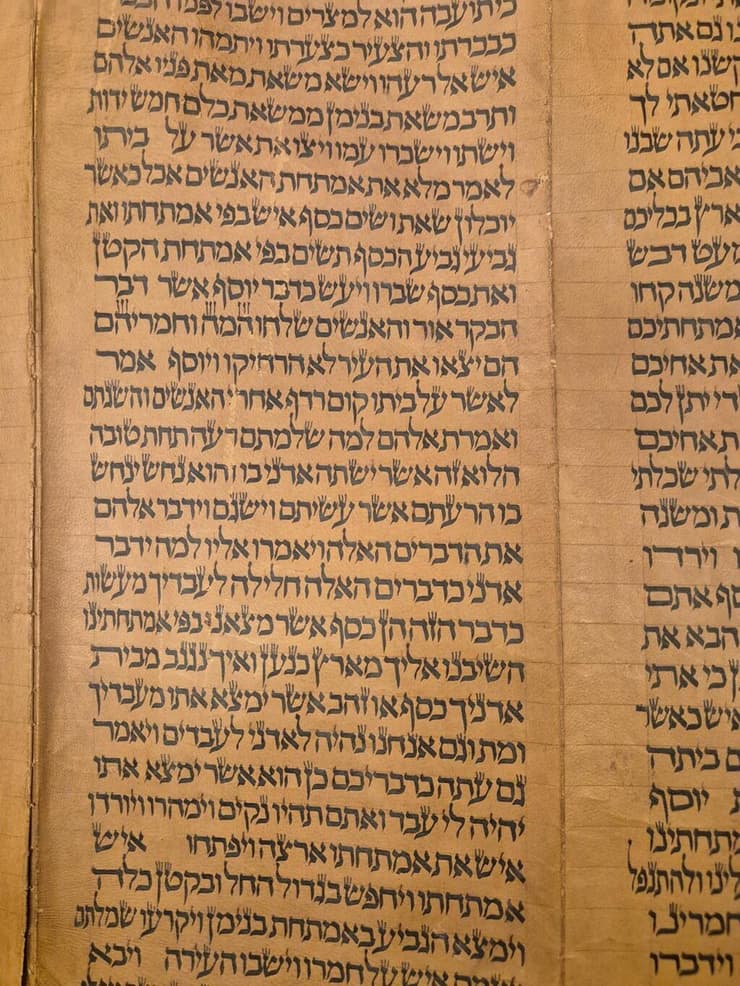 גם אתה
אם לא
חטאתי לך
עתה שבנו
אביהם אם
בכליכם
מעט דבש
משנה קחו
אמתחתיכם
את אחיכם
יתן לכם
אחיכם
שכלתי
ומשנה
וירדו
אתם
הבא את
כי אתי
איש כאשר
ביתה
יוסף
ולהתנפל
חמרינו
וידברו
תועבה הוא למצרים וישבו לפניו
כבכרתו והצעיר כצערתו ויתמהו האנשים
איש אל רעהו וישא משאת מאת פניו אלהם
ותרב משאת בנימן ממשאת כלם חמש ידות
וישתו וישכרו עמו ויצו את אשר על ביתו
לאמר מלא את אמתחת האנשים אכל כאשר
יוכלון שאת ושים כסף איש בפי אמתחתו ואת
גביעי גביע הכסף תשים בפי אמתחת הקטן
ואת כסף שברו ויעש כדבר יוסף אשר דבר
הבקר אור והאנשים שלחו המה וחמריהם
הם יצאו את העיר לא הרחיקו ויוסף אמר
לאשר על ביתו קום רדף אחרי האנשים והשגתם
ואמרת אלהם למה שלמתם רעה תחת טובה
הלוא זה אשר ישתה אדני בו והוא נחש ינחש
בו הרעתם אשר עשיתם וישגם וידבר אלהם
את הדברים האלה ויאמרו אליו למה ידבר
אדני כדברים האלה חלילה לעבדיך מעשות
כדבר הזה הן כסף אשר מצאנו בפי אמתחתינו
השיבנו אליך מארץ כנען ואיך נגנב מבית
אדניך כסף או זהב אשר ימצא אתו מעבדיך
ומת וגם אנחנו נהיה לאדני לעבדים ויאמר
גם עתה כדבריכם כן הוא אשר ימצא אתו
יהיה לי עבד ואתם תהיו נקים וימהרו ויורדו
איש את אמתחתו ארצה ויפתחו איש
אמתחתו ויחפש בגדול החל ובקטן כלה
וימצא הגביע באמתחת בנימן ויקרעו שמלתם
איש על חמרו וישבו העירה ויבא